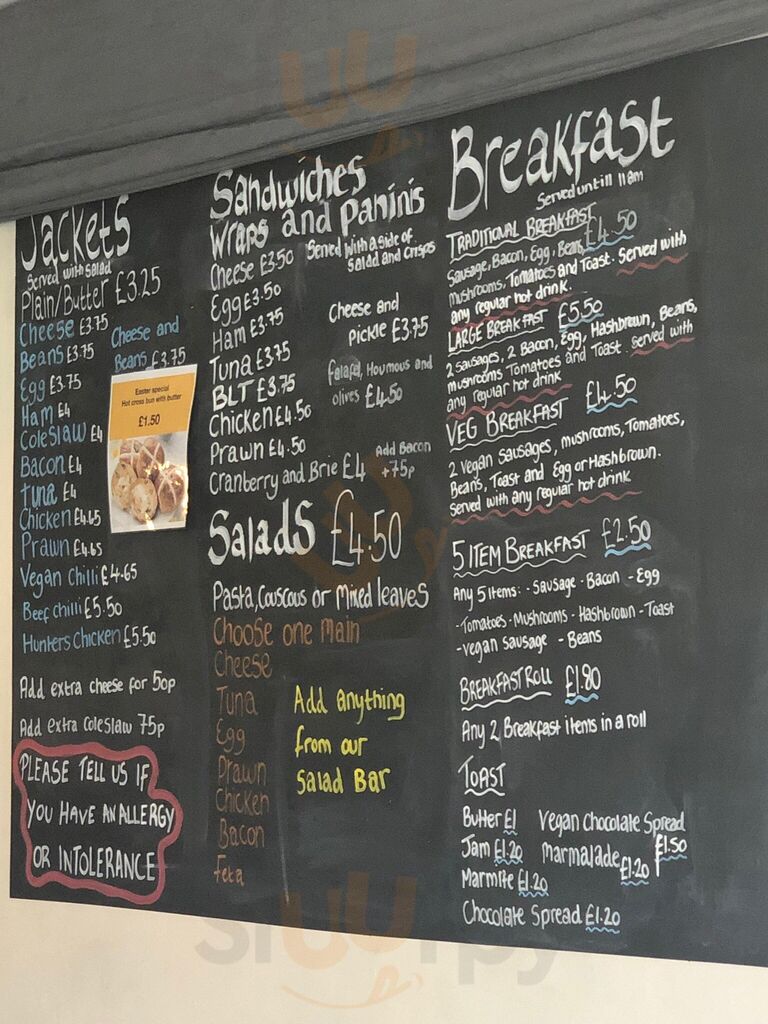 Jackets
Served with Salad
Plain/Butter £3.25
Cheese £3.75
Beans £3.75
Cheese and
Beans £3.75
Egg £3.75
Ham £4
Coleslaw £4
Bacon £4
Tuna £4
Chicken £4.65
Prawn £4.65
Vegan Chilli £4.65
Beef chilli £5.50
Hunters Chicken £5.50
Add extra cheese for 50p
Add extra coleslaw 75p
PLEASE TELL US IF
YOU HAVE AN ALLERGY
OR INTOLERANCE
Easter special
Hot cross bun with butter
£1.50
Sandwiches
Wraps and Paninis
Served with a side of
Salad and Crisps
Cheese £3.50
Egg £3.50
Ham £3.75
Tuna £3.75
BLT £3.75
Chicken £4.50
Prawn £4.50
Cranberry and Brie £4
Add Bacon
+75p
Cheese and
pickle £3.75
falafel, Houmous and
olives £4.50
Salads £4.50
Pasta, Couscous or Mixed leaves
Choose one main
Cheese
Tuna
Egg
Prawn
Chicken
Bacon
Feta
Add anything
from our
Salad Bar
Breakfast
Served until 11am
TRADITIONAL BREAKFAST £4.50
Sausage, Bacon, Egg, Beans,
Mushrooms, Tomatoes and Toast. Served with
any regular hot drink.
LARGE BREAKFAST £5.50
2 sausages, 2 Bacon, Egg, Hashbrown, Beans,
mushrooms Tomatoes and Toast. served with
any regular hot drink
VEG BREAKFAST £4.50
2 vegan Sausages, mushrooms, Tomatoes,
Beans, Toast and Egg or Hashbrown.
served with any regular hot drink
5 ITEM BREAKFAST £2.50
Any 5 items: - Sausage - Bacon - Egg
-Tomatoes - Mushrooms - Hashbrown - Toast
-vegan sausage - Beans
BREAKFAST ROLL £1.80
Any 2 Breakfast items in a roll
TOAST
Butter £1
Jam £1.20
Marmite £1.20
Chocolate Spread £1.20
Vegan Chocolate Spread
£1.50
Marmalade £1.20
Sluurpy